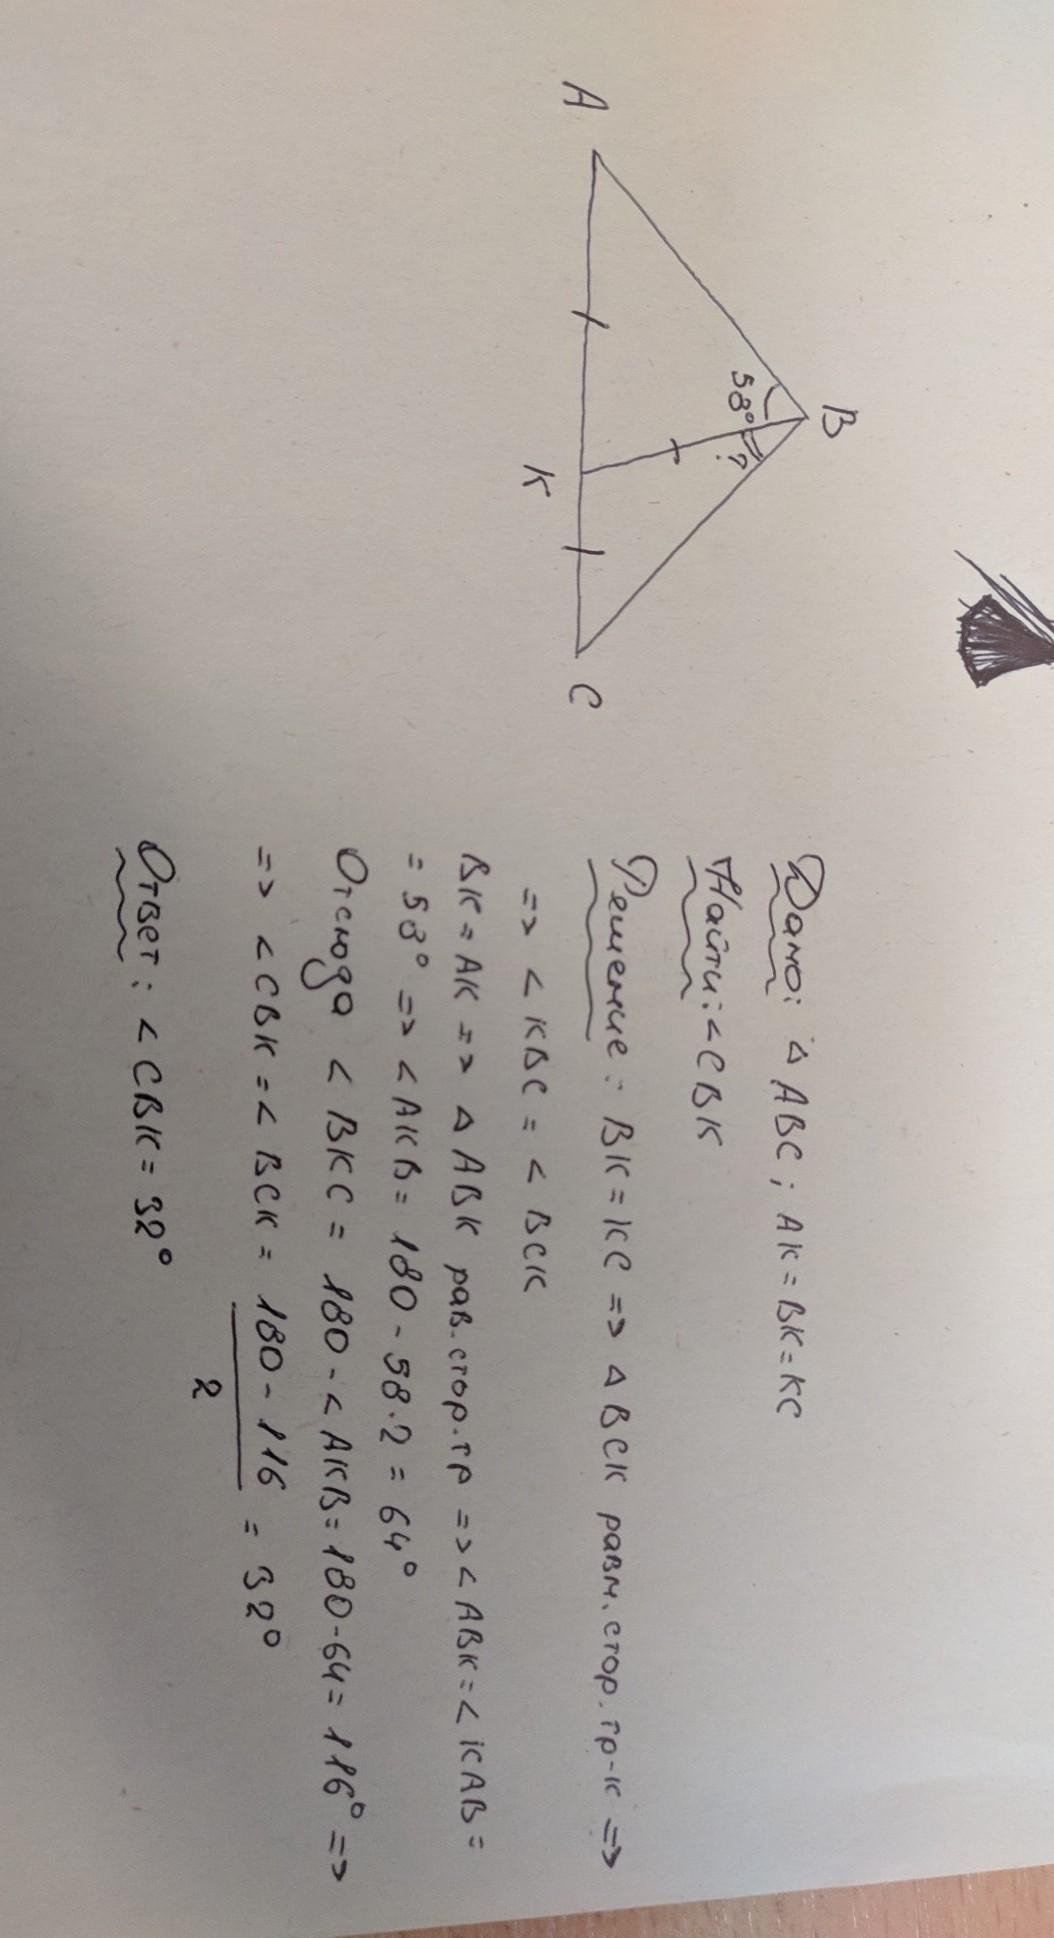 A
B
58°
?
K
C
Дано: △ ABC; AK = BK = KC
Найти: < CBK
Решение: BK = KC => △ BCK равн. стор. тр-к =>
=> < KBC = < BCK
BK = AK => △ ABK рав. стор. тр => < ABK = < KAB =
= 58° => < AKB = 180 - 58 · 2 = 64°
Отсюда < BKC = 180 - < AKB = 180 - 64 = 116° =>
=> < CBK = < BCK = 180 - 116 = 32°
2
Ответ: < CBK = 32°